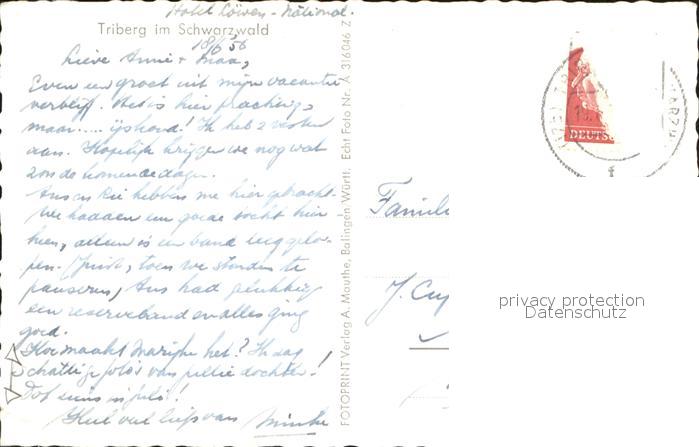 Hotel Löwen - National.
Triberg im Schwarzwald
18/6 '56
Lieve Annie + Maa,
Even een groet uit mijn vacantie
verblijf. Het is hier prachtig,
maar..... ijskoud! Ik heb 2 vesten
aan. Hopelijk krijgen we nog wat
zon de komende dagen.
en hebben me hier gebracht.
We hadden een goede tocht hier
heen, alleen is een band leeggelo-
pen. (Juist, toen we stonden te
pauseren, had gelukkig
een reserveband en alles ging
goed.
Hoe maakt Marijke het? Ik zag
schattige foto's van jullie dochter!
Tot eens in juli!
Heel veel liefs van Minke
FOTOPRINT Verlag A. Mauthe, Balingen Württ. Echt Foto Nr. A 316046 Z
DEUTS
Famili
J. Cup
privacy protection
Datenschutz